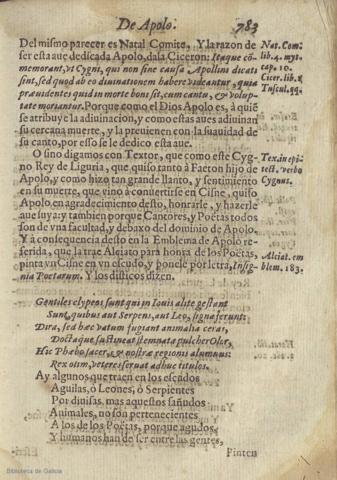 De Apolo. 783
Del mismo parecer es Natal Comite, Y la razon de
ser esta aue dedicada Apolo, da la Ciceron: Itaque cõ-
memorant, vt Cygni, qui non sine causa Apollini dicati
sint, sed quod ab eo diuinationem habere videantur, quia
præuidentes quid in morte boni sit, cum cantu, & volup-
tate morantur. Porque como el Dios Apolo es, à quiẽ
se atribuye la adiuinacion, y como estas aues adiuinan
su cercana muerte, y la preuienen con la suauidad de
su canto, por esso se le dedico esta aue.
Nat. Com.
lib. 4. myt.
cap. 10.
Cicer. lib. 1.
Tuscul. qq.
O sino digamos con Textor, que como este Cyg-
no Rey de Liguria, que quiso tanto à Faeton hijo de
Apolo, y como hizo tan grande llanto, y sentimiento
en su muerte, que vino à conuertirse en Cisne, quiso
Apolo en agradecimiento desto, honrarle, y hazerle
aue suya: y tambien porque Cantores, y Poëtas todos
son de vna facultad, y debaxo del dominio de Apolo.
Y à consequencia desto en la Emblema de Apolo re-
ferida, que la trae Alciato para honra de los Poëtas,
pinta vn Cisne en vn escudo, y ponele por letra, Insig-
nia Poetarum. Y los disticos dizen.
Tex. in epi-
tect. verbo
Cygnus.
Alciat. em
blem. 183.
Gentiles clypeos sunt qui in Iouis alite gestant
Sunt, quibus aut Serpens, aut Leo, signa ferunt:
Dira, sed hæc vatum fugiant animalia ceras,
Doctaque sustineat stemmata pulcher Olor,
Hic Phæbo sacer, & nostræ regionis alumnus:
Rex olim, veteres seruat adhuc titulos.
Ay algunos que traen en los escudos
Aguilas, ò Leones, ò Serpientes
Por diuisas, mas aquestos sañudos
Animales, no son pertenecientes
A los de los Poëtas, porque agudos,
Y humanos han de ser entre las gentes,
Pinten
Biblioteca de Galicia